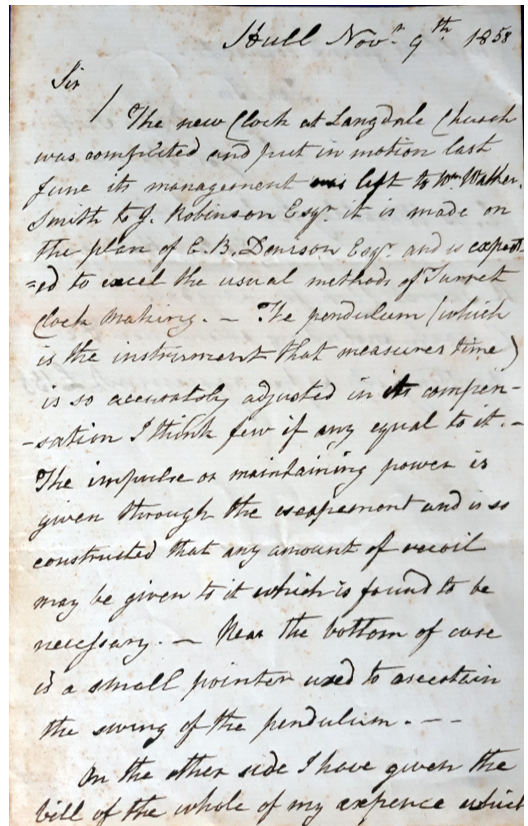 Hull Novr. 9th 1858
Sir
/ The new Clock at Langdale Church
was completed and put in motion last
June its management was left to Wm Walker
Smith to J. Robinson Esqr. it is made on
the plan of E. B. Denison Esqr. and is expect
=ed to excel the usual methods of Turret
Clock making. — The pendulum (which
is the instrument that measures time)
is so accurately adjusted in its compen-
-sation I think few if any equal to it. —
The impulse or maintaining power is
given through the escapement and is so
constructed that any amount of recoil
may be given to it which is found to be
necessary. — Near the bottom of case
is a small pointer used to ascertain
the swing of the pendulum. — —
On the other side I have given the
bill of the whole of my expence which